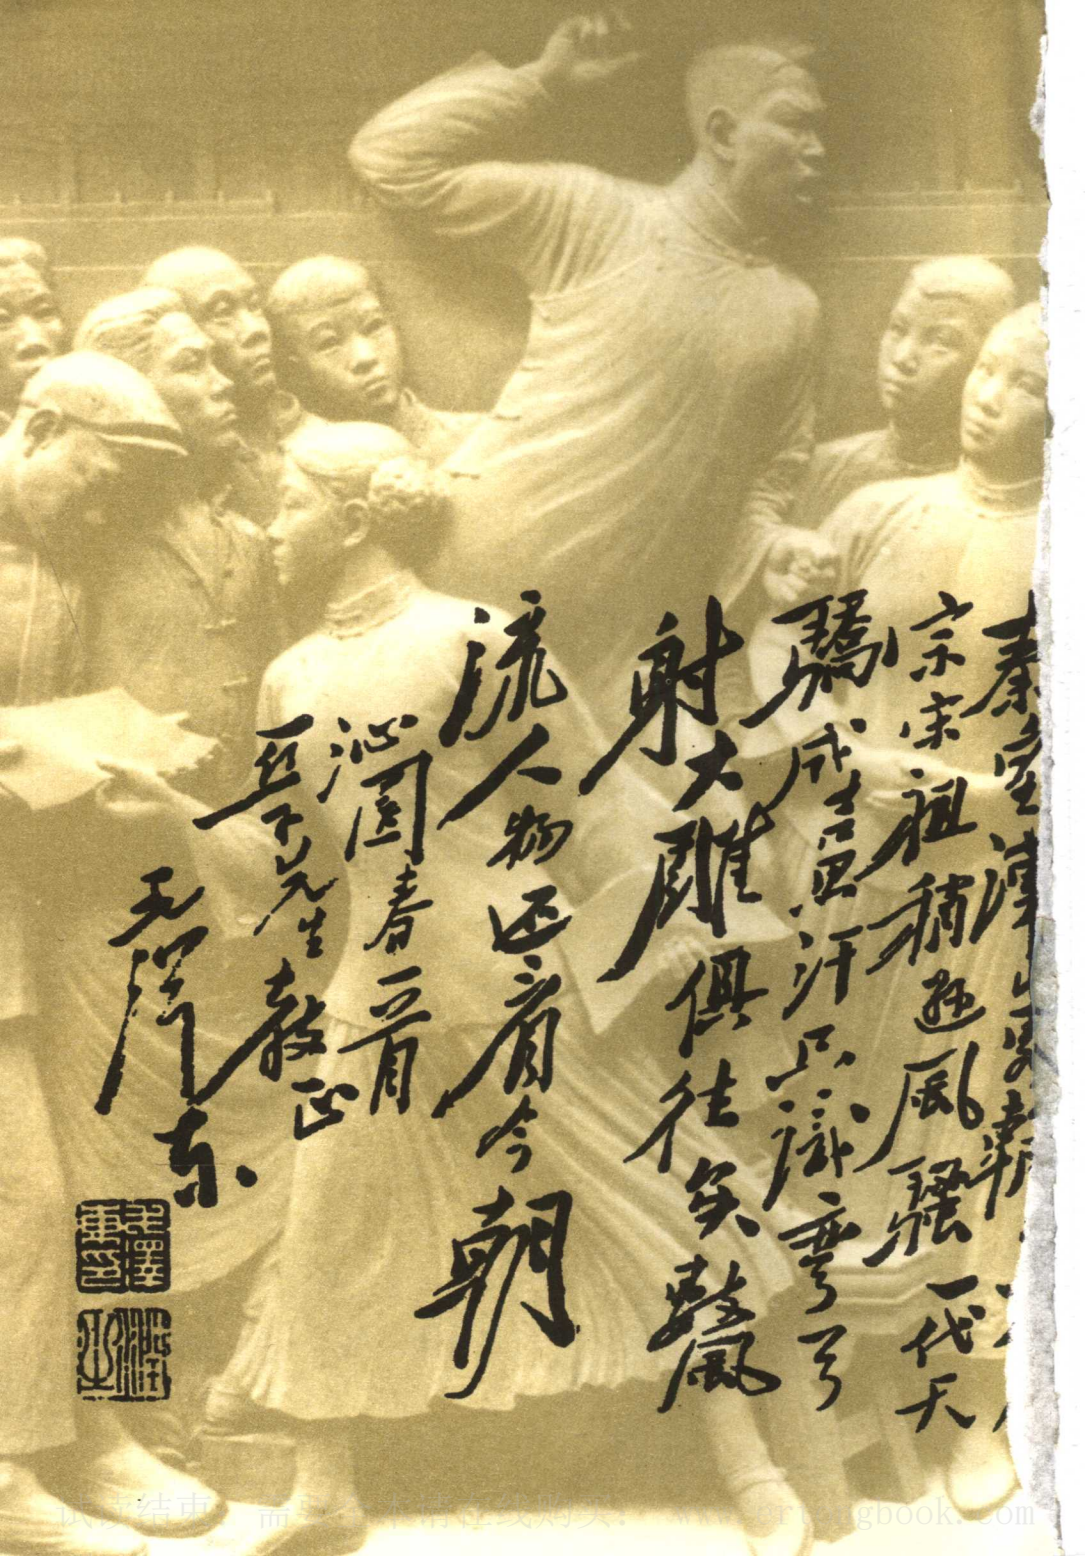 秦皇漢
宗宋祖稍遜風騷一代天
驕成吉思汗只識彎弓
射大雕俱往矣數風
流人物还看今朝
沁園春一首
亞子先生教正
毛澤東
毛澤東印
潤之
试读结束：需要全本请在线购买： www.ertongbook.com